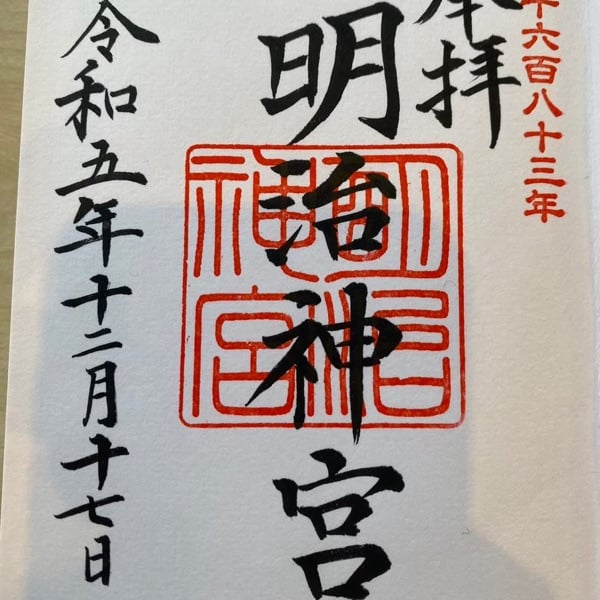 千六百八十三年
奉拝
明治神宮
明治
神宮
令和五年十二月十七日